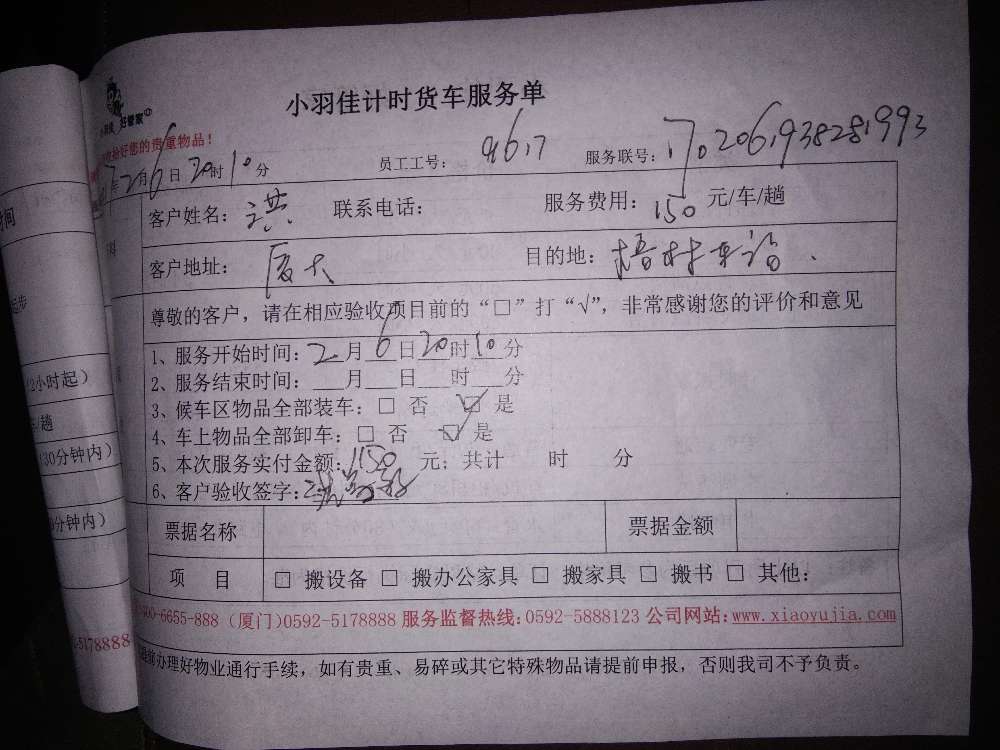 小羽佳计时货车服务单
好管家
好您的贵重物品！
年2月6日20时10分 员工工号： 服务联号：1702061938281993
客户姓名：洪 联系电话： 服务费用：150元/车/趟
客户地址：厦大 目的地：
尊敬的客户，请在相应验收项目前的“□”打“√”，非常感谢您的评价和意见
1、服务开始时间：2月6日20时10分
2、服务结束时间：___月___日___时___分
3、候车区物品全部装车：□ 否 ☑ 是
4、车上物品全部卸车：□ 否 ☑ 是
5、本次服务实付金额：150元；共计 时 分
6、客户验收签字：
票据名称 票据金额
项 目 □ 搬设备 □ 搬办公家具 □ 搬家具 □ 搬书 □ 其他：
400-6655-888（厦门）0592-5178888 服务监督热线：0592-5888123 公司网站：www.xiaoyujia.com
前办理好物业通行手续，如有贵重、易碎或其它特殊物品请提前申报，否则我司不予负责。
2小时起）
/趟
（30分钟内）
0分钟内）
-5178888